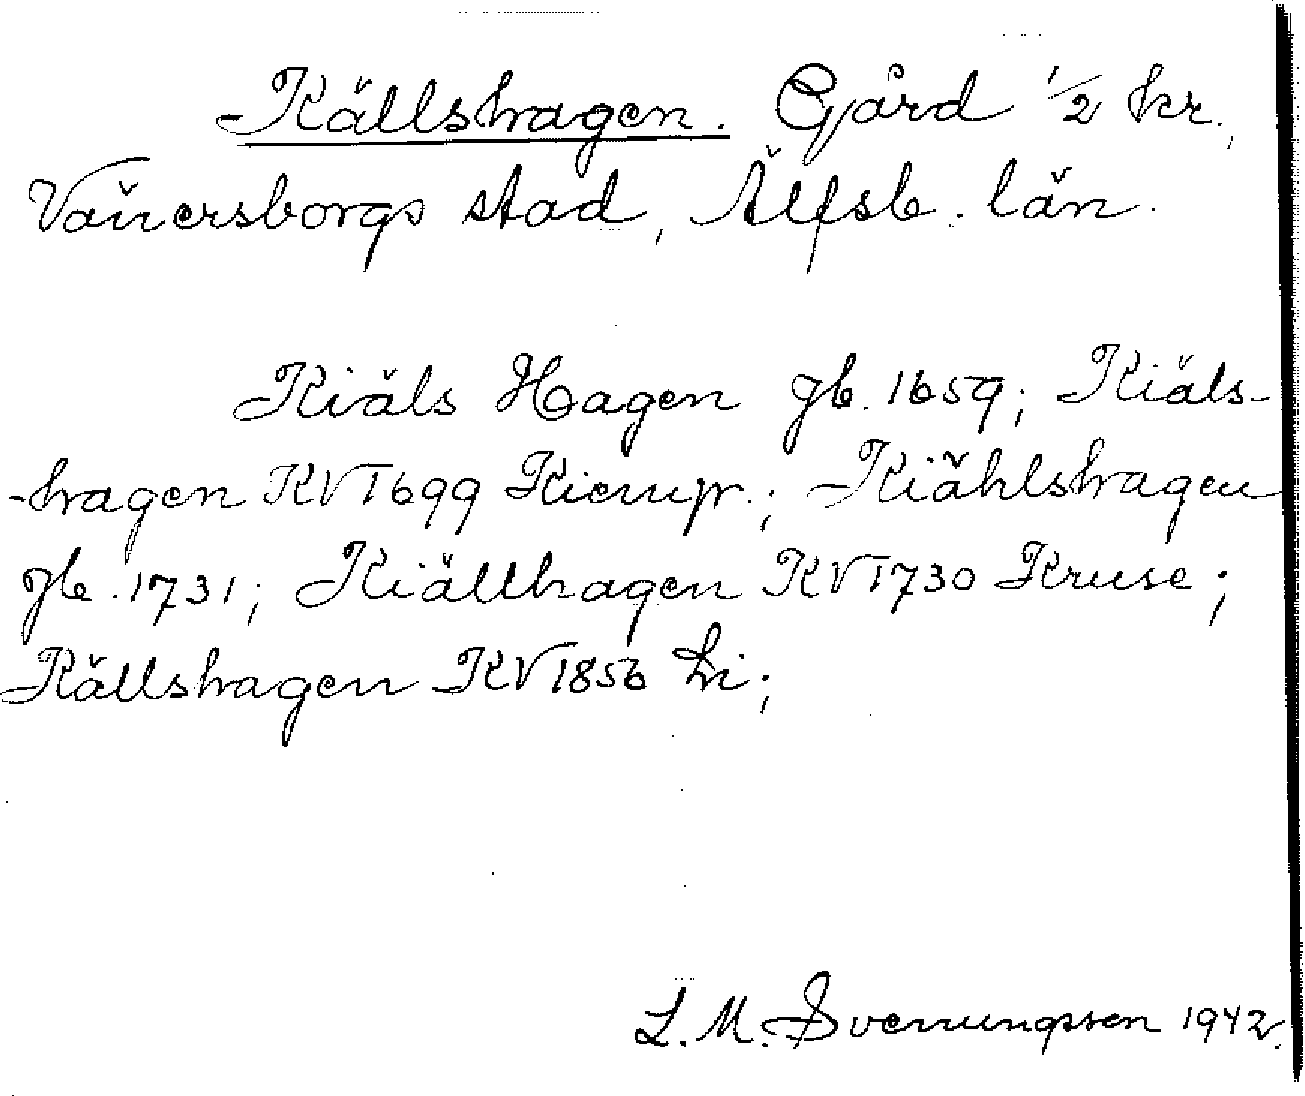 Källshagen. Gård 1/2 kr.,
Vänersborgs stad, Älfsb. län.
Kiäls Hagen Jb. 1659; Kiäls-
-hagen KVT 1699 Kierup.; Kiählshagen
Jb. 1731; Kiällhagen KVT 1730 Kruse;
Källshagen KV 1856 Li;
L. M. Svenungsson 1942.